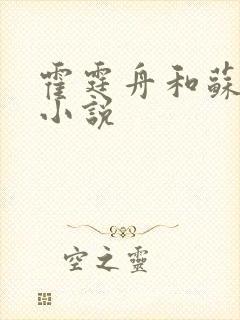 霍霆舟和蘇
小說
空之靈